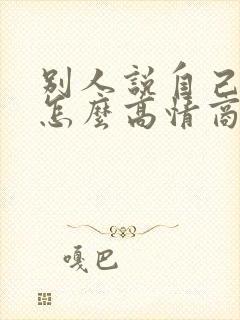 別人説自己
怎麼高情商
嘎巴